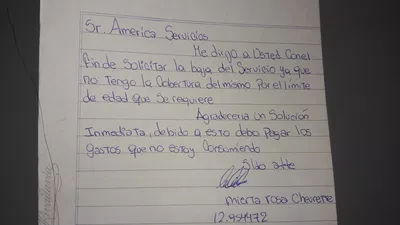 Sr. America Servicios
Me dirijo a Usted Con el
fin de Solicitar la baja del Servicio ya que
no Tengo la Cobertura del mismo Por el limite
de edad que Se requiere
Agradeceria un Solucion
Inmediata, debido a esto debo Pagar los
gastos que no estoy Consumiendo
Sldo atte
mierta rosa Chevreste
12.954472